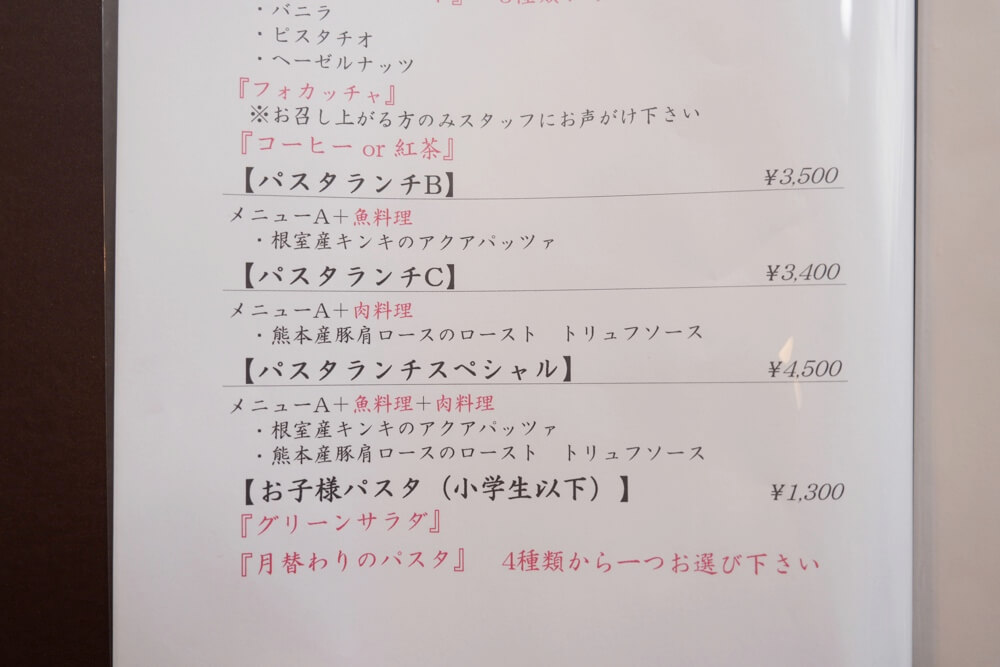 ・バニラ
・ピスタチオ
・ヘーゼルナッツ
『フォカッチャ』
※お召し上がる方のみスタッフにお声がけ下さい
『コーヒー or 紅茶』
【パスタランチB】 ¥3,500
メニューA＋魚料理
・根室産キンキのアクアパッツァ
【パスタランチC】 ¥3,400
メニューA＋肉料理
・熊本産豚肩ロースのロースト　トリュフソース
【パスタランチスペシャル】 ¥4,500
メニューA＋魚料理＋肉料理
・根室産キンキのアクアパッツァ
・熊本産豚肩ロースのロースト　トリュフソース
【お子様パスタ（小学生以下）】 ¥1,300
『グリーンサラダ』
『月替わりのパスタ』　4種類から一つお選び下さい